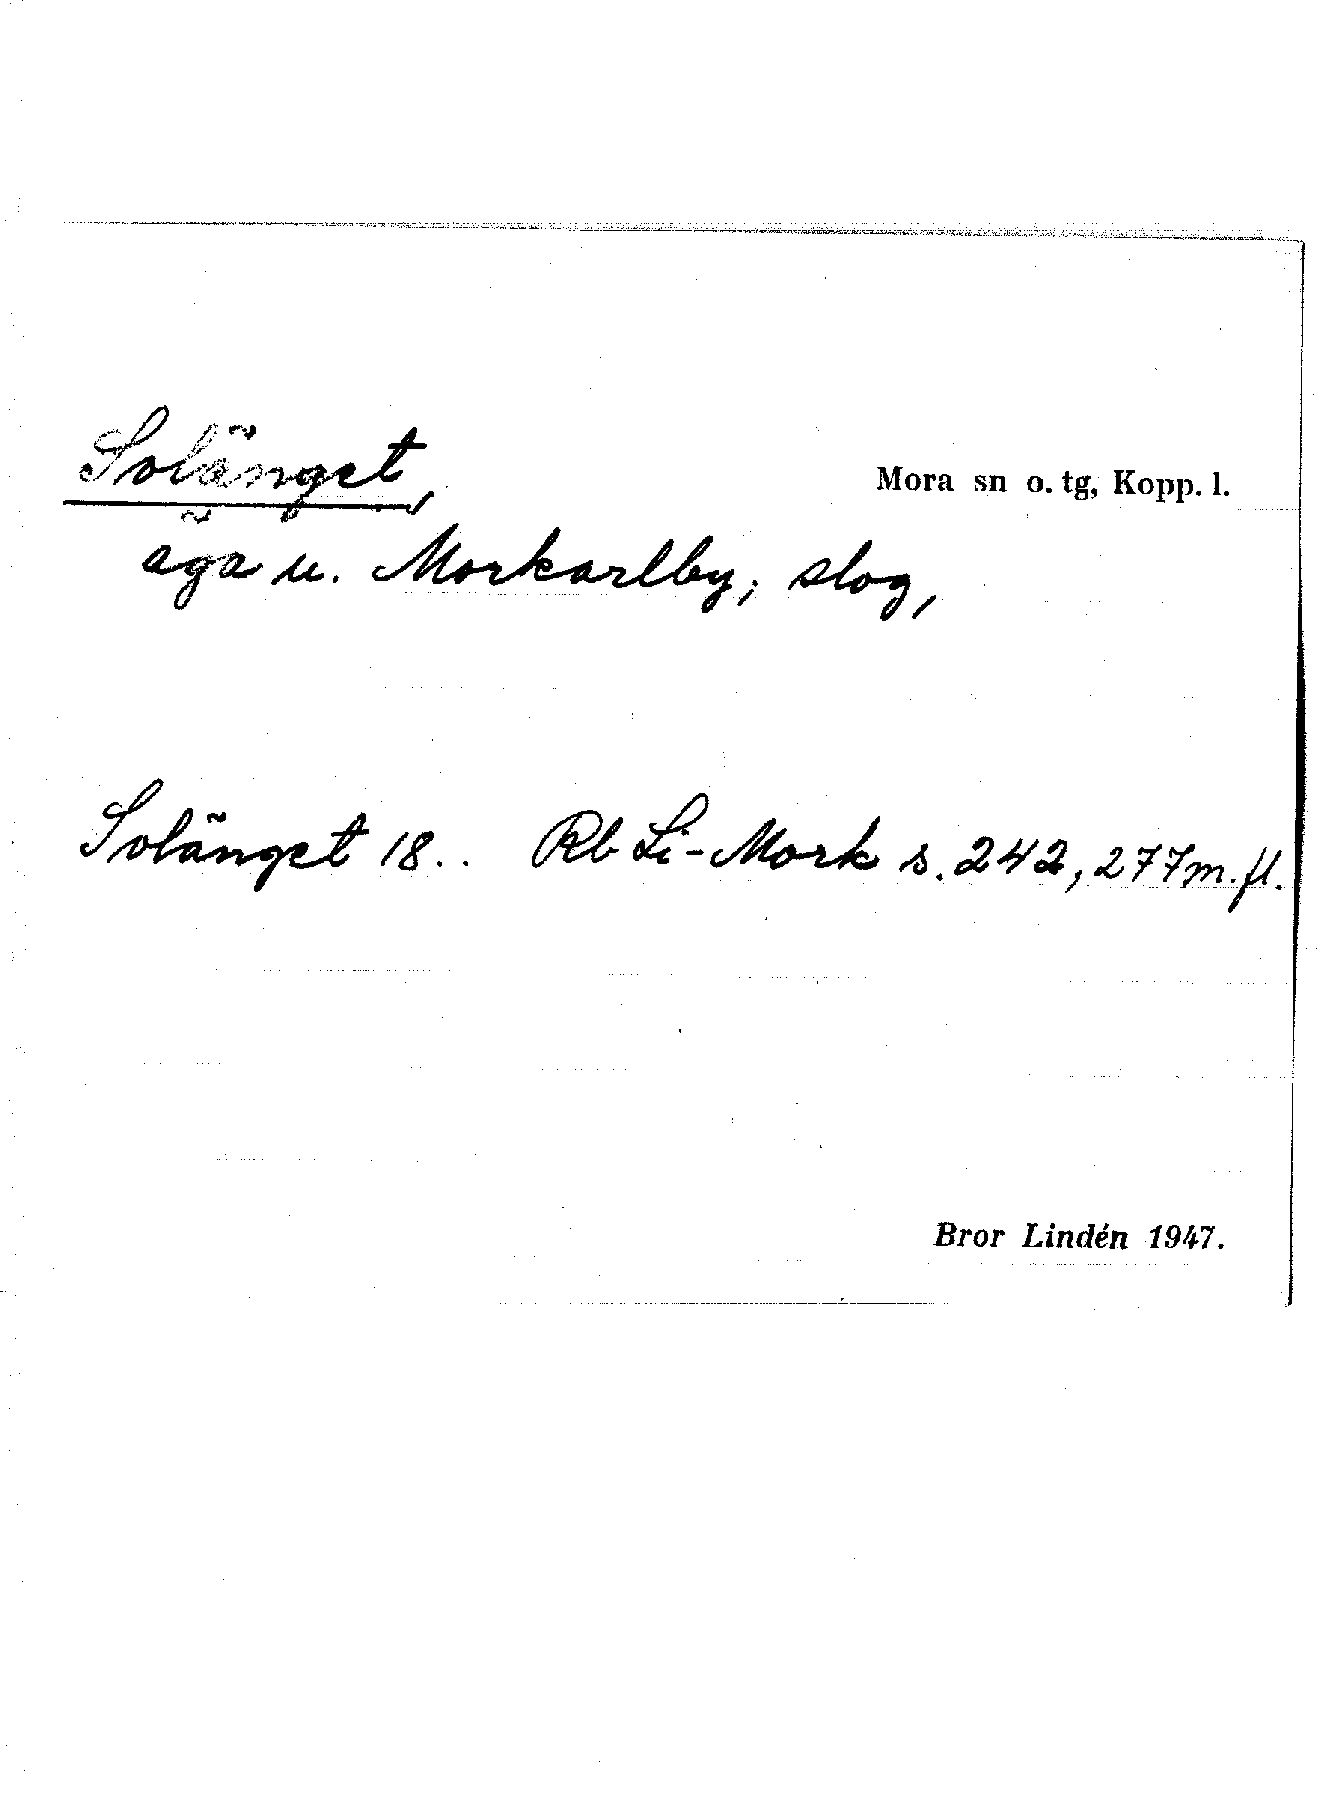 Solänget,
Mora sn o. tg, Kopp. l.
äga u. Morkarlby; slog,
Solänget 18.. Rb Li-Mork s. 242, 277 m. fl.
Bror Lindén 1947.